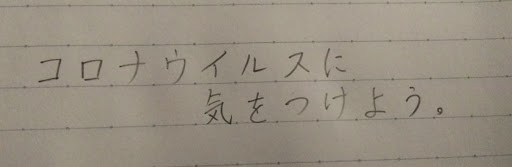 コロナウイルスに
気をつけよう。